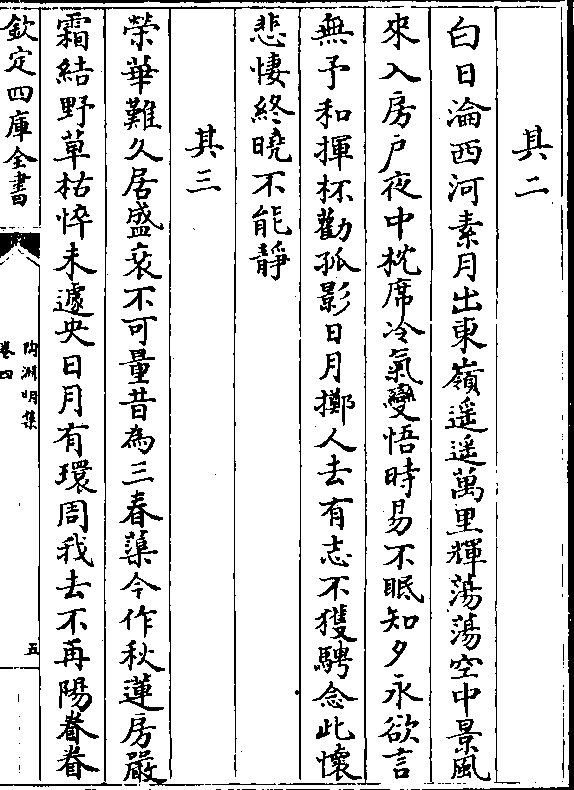 其二
白日淪西河素月出東嶺遥遥萬里輝蕩蕩空中景風
來入房户夜中枕席冷氣變悟時易不眠知夕永欲言
無予和揮杯勸孤影日月擲人去有志不獲騁念此懷
悲悽終曉不能靜
其三
榮華難久居盛衰不可量昔為三春蕖今作秋蓮房嚴
霜結野草枯悴未遽央日月有環周我去不再陽眷眷
欽定四庫全書
陶淵明集
卷四
五